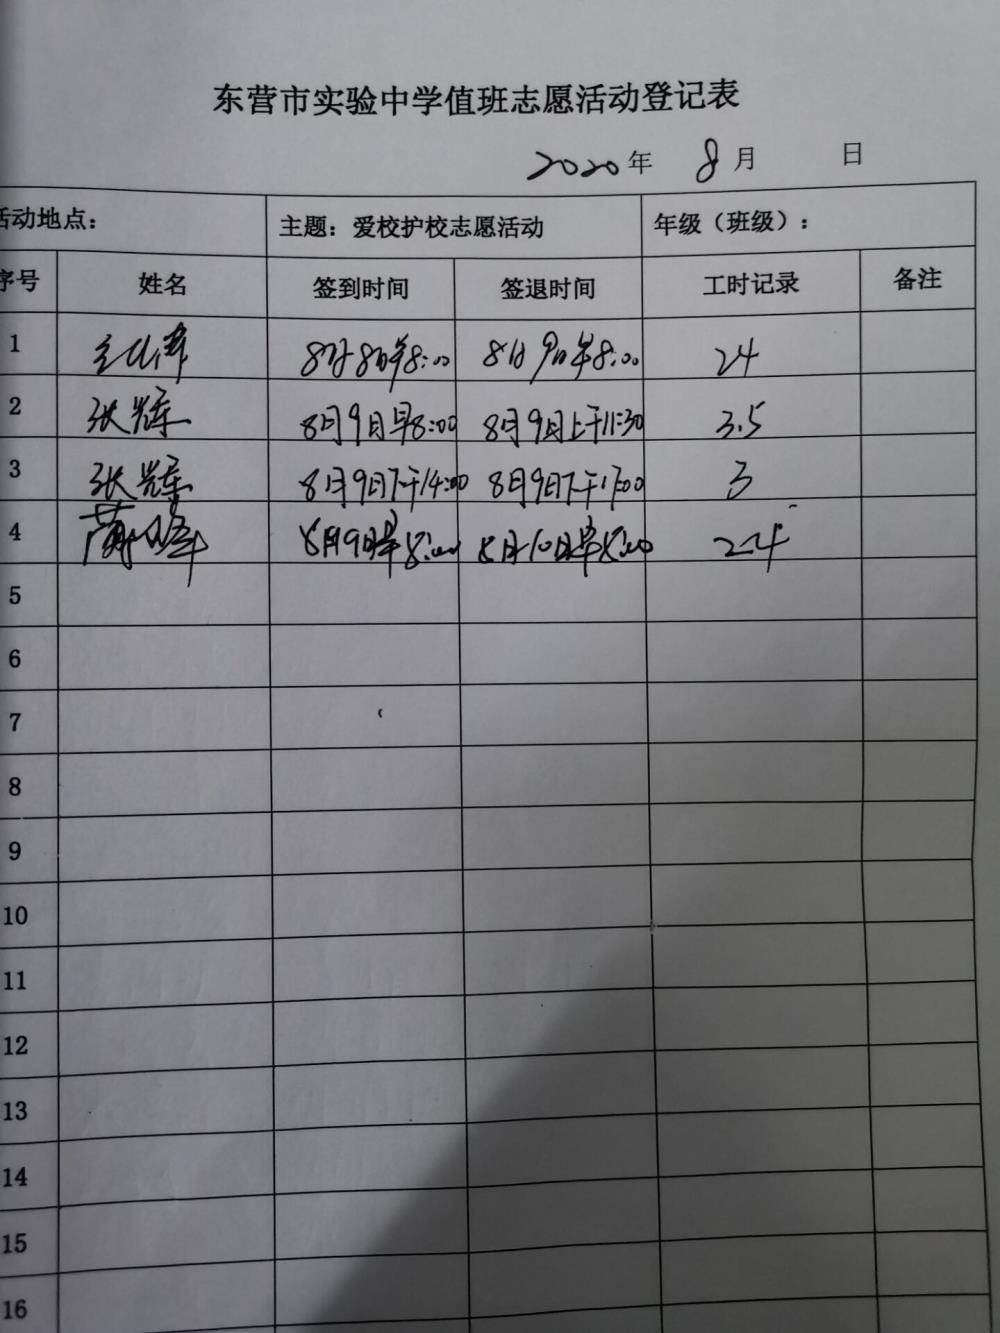 东营市实验中学值班志愿活动登记表
2020年 8月 日
活动地点： 主题：爱校护校志愿活动 年级（班级）：
序号 姓名 签到时间 签退时间 工时记录 备注
1 8月8日早8:00 8月9日早8:00 24
2 张辉 8月9日早8:00 8月9日上午11:30 3.5
3 张辉 8月9日下午14:00 8月9日下午17:00 3
4 8月9日早8:00 8月10日早8:00 24
5
6
7
8
9
10
11
12
13
14
15
16